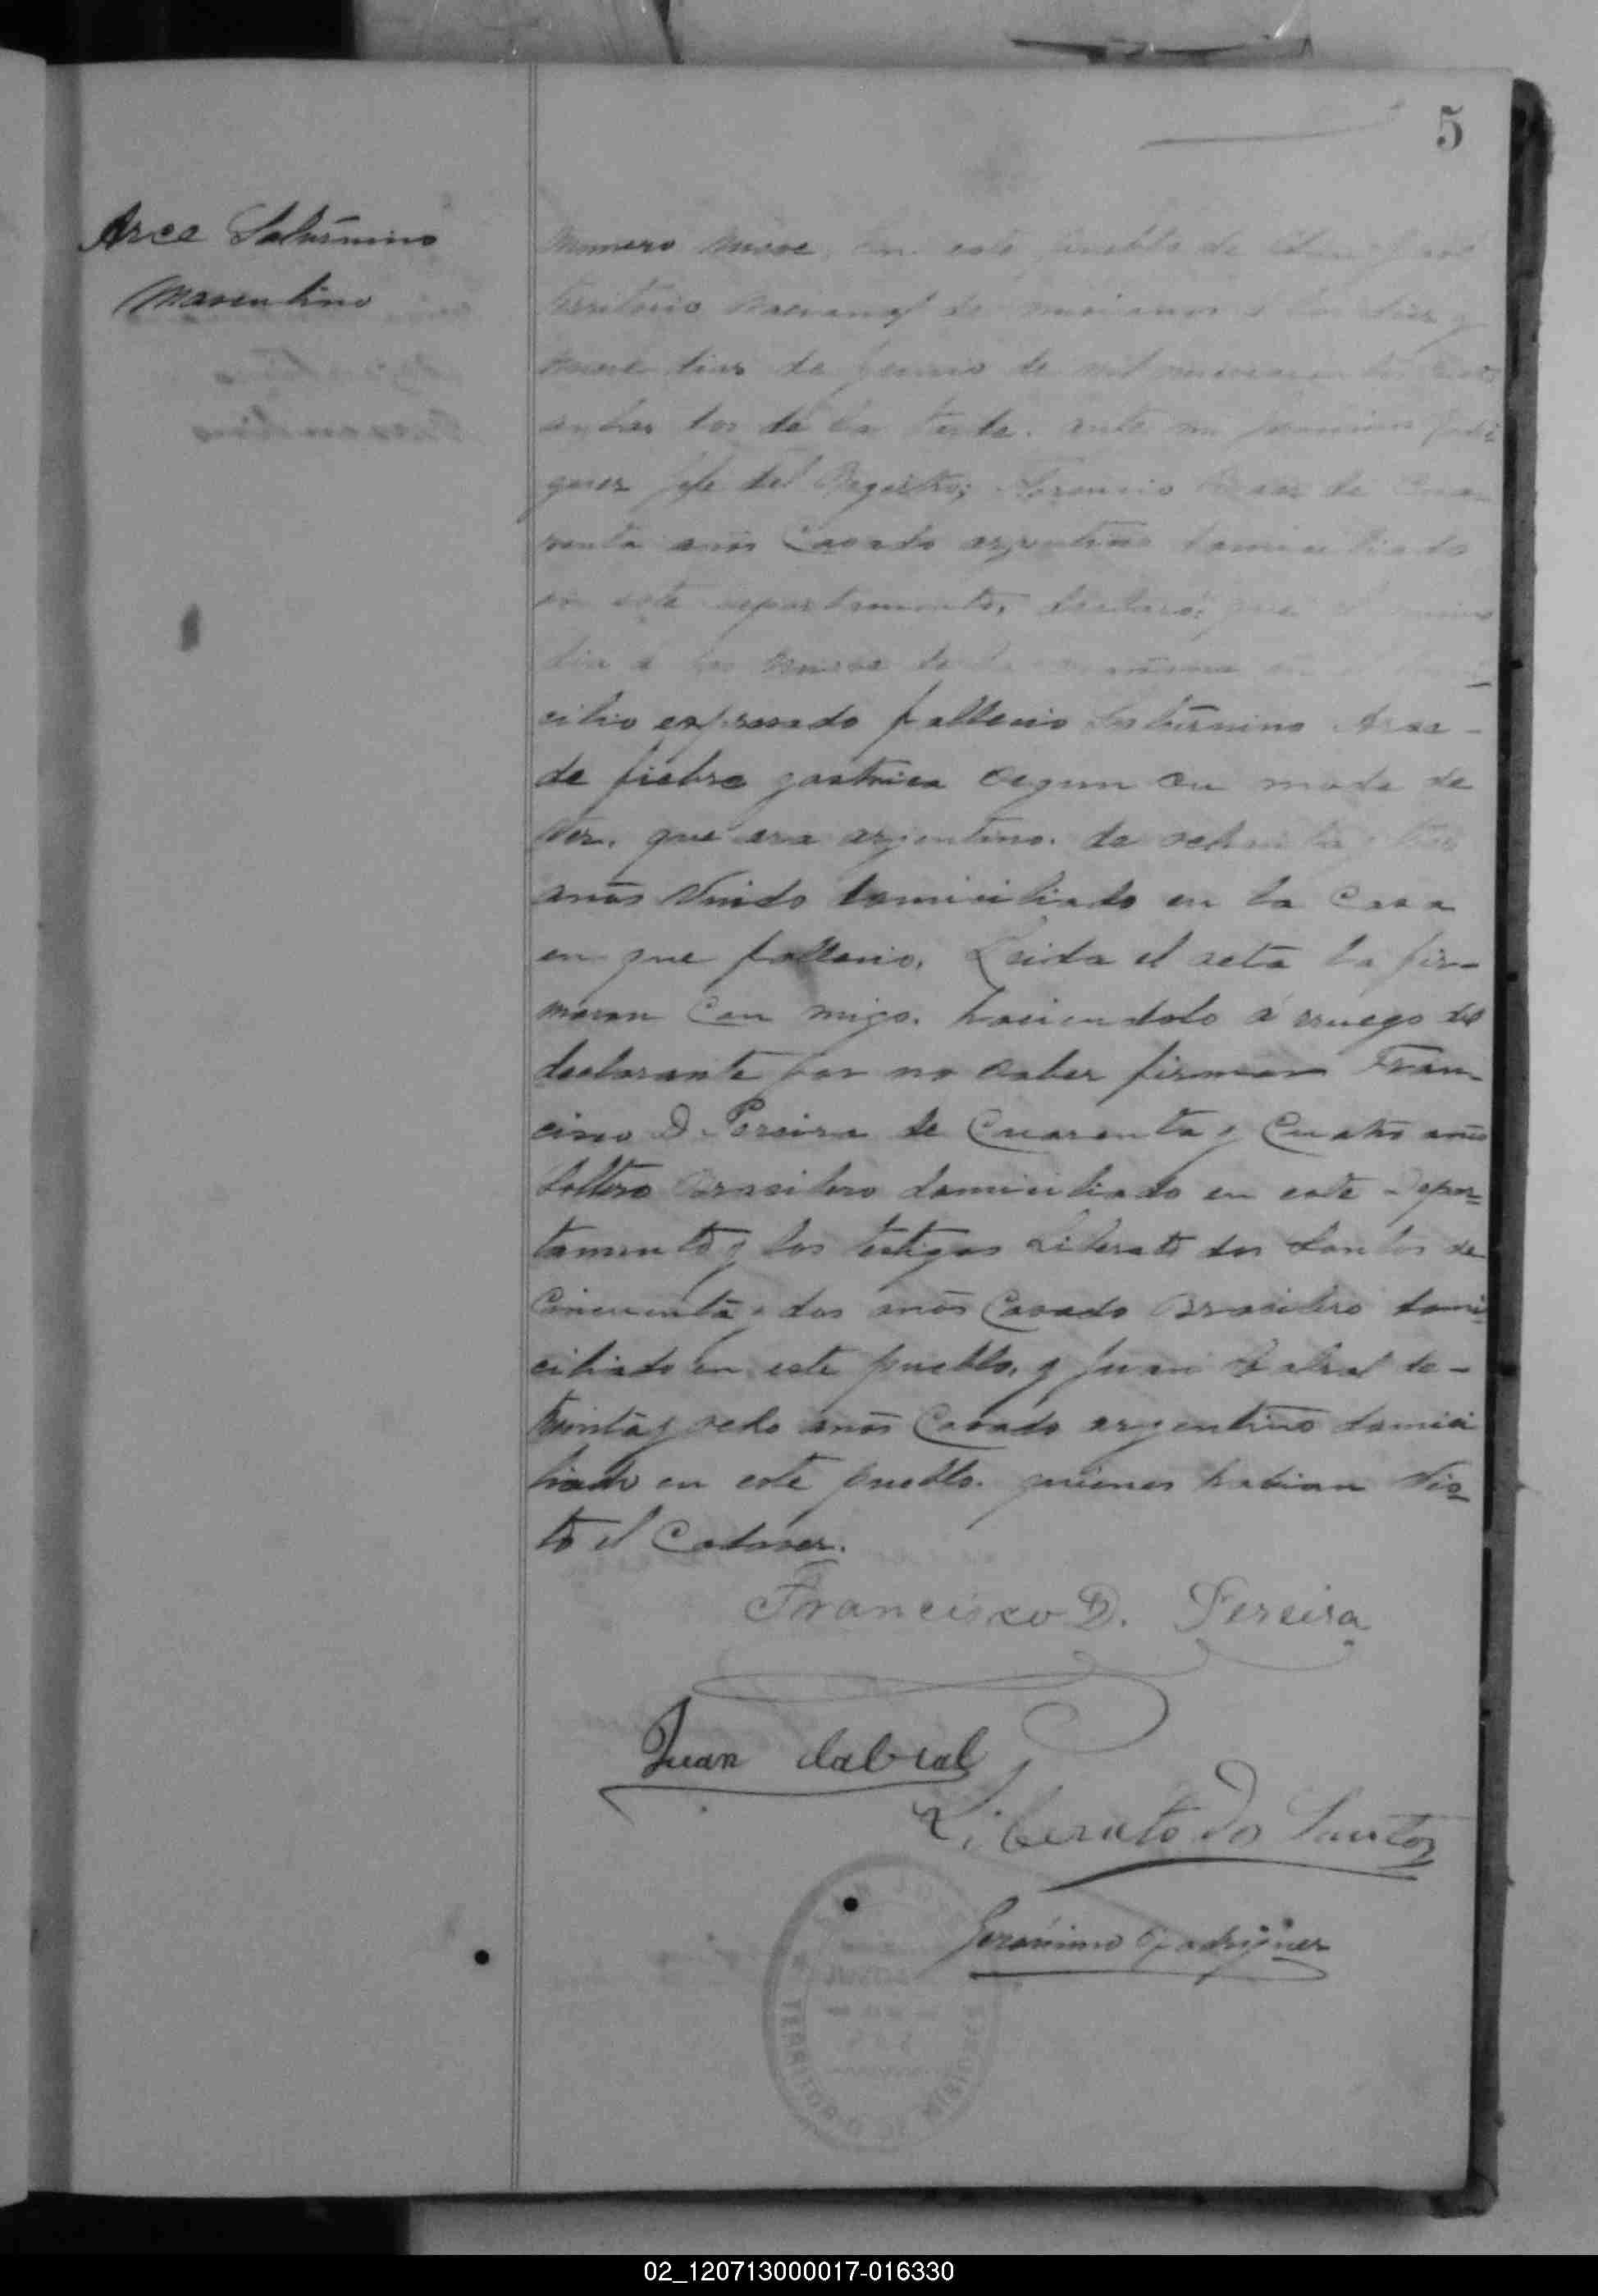 5
Arce Saturnino
Masculino
Numero Nueve, En este pueblo de San José
Territorio Nacional de misiones a los diez y
nueve dias de de mil novecientos
antes dos de la tarde. ante mi Rodri
guez Jefe del Registro; de Cua-
renta años Casado argentino domiciliado
en este departamento, declaró: que
dia a las nueve de la mañana en
cilio expresado fallecio Saturnino Arce -
de fiebre gastrica segun su modo de
Ver, que era argentino. de ochenta
anos Viudo domiciliado en la Casa
en que fallecio. Leida el acta la fir-
maron Con migo. haciendolo á ruego del
declarante por no saber firmar Fran-
cisco D. Pereira de Cuarenta y Cuatro años
Soltero Brasilero domiciliado en este Depar=
tamento y los testigos Liberato dos Santos de
Cincuenta y dos anos Casado Brasilero domi=
ciliado en este pueblo, y Juan Cabral de -
treinta y ocho anos Casado argentino domici
liado en este pueblo. quienes habian Vis=
to el Cadaver.
Francisco D. Pereira
Juan Cabral
Liberato dos Santos
Gerónimo Rodriguez
02_120713000017-016330